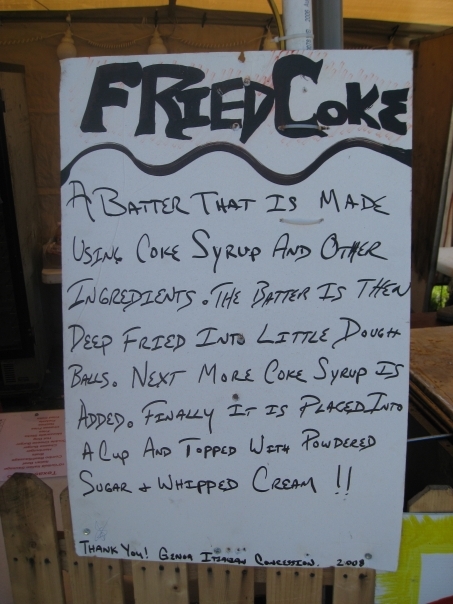 FRIED COKE
A BATTER THAT IS MADE
USING COKE SYRUP AND OTHER
INGREDIENTS. THE BATTER IS THEN
DEEP FRIED INTO LITTLE DOUGH
BALLS. NEXT MORE COKE SYRUP IS
ADDED. FINALLY IT IS PLACED INTO
A CUP AND TOPPED WITH POWDERED
SUGAR & WHIPPED CREAM !!
THANK YOU! GENOA ITALIAN CONCESSION. 2008